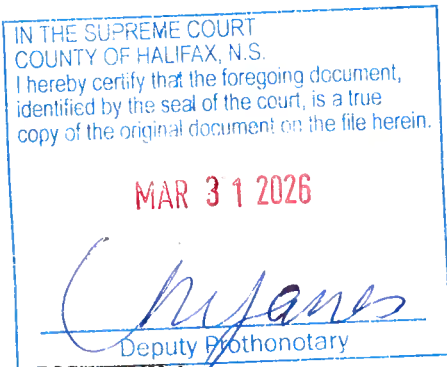 IN THE SUPREME COURT
COUNTY OF HALIFAX, N.S.
I hereby certify that the foregoing document,
identified by the seal of the court, is a true
copy of the original document on the file herein.
MAR 31 2026
Deputy Prothonotary